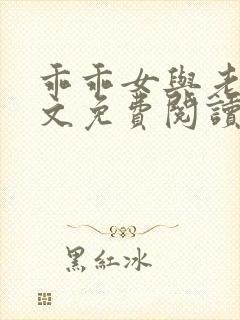 乖乖女與老
文免費閱讀
黑紅冰